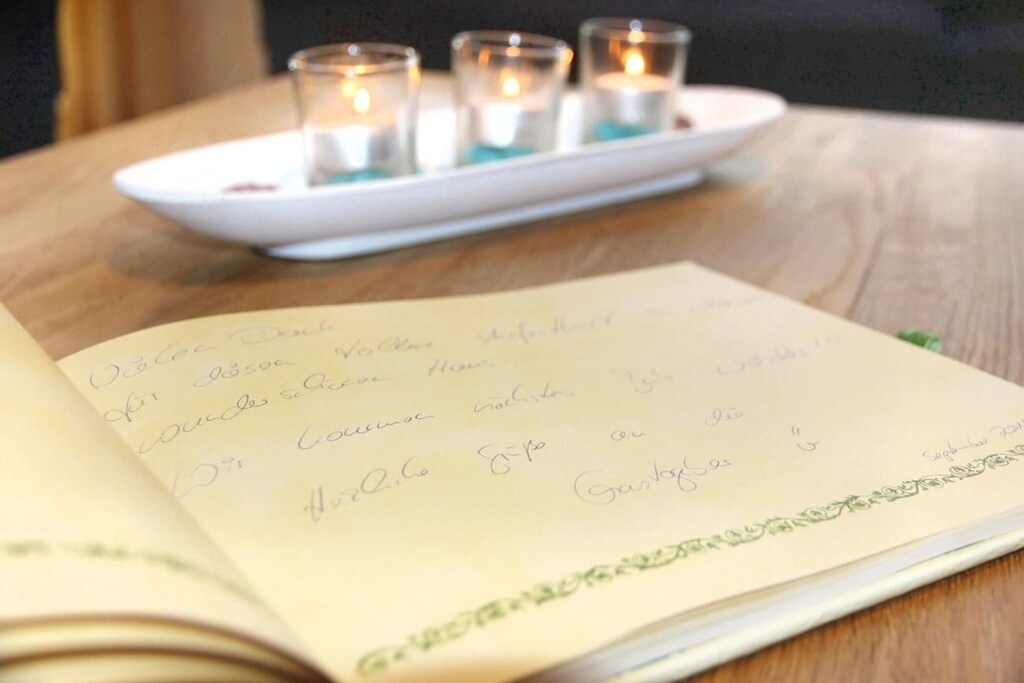 Vielen Dank
für diesen tollen Aufenthalt in
wunderschönen Haus
Wir kommen nächsten Jahr wieder!!!
Herzliche Grüße an die
Gastgeber ü
September